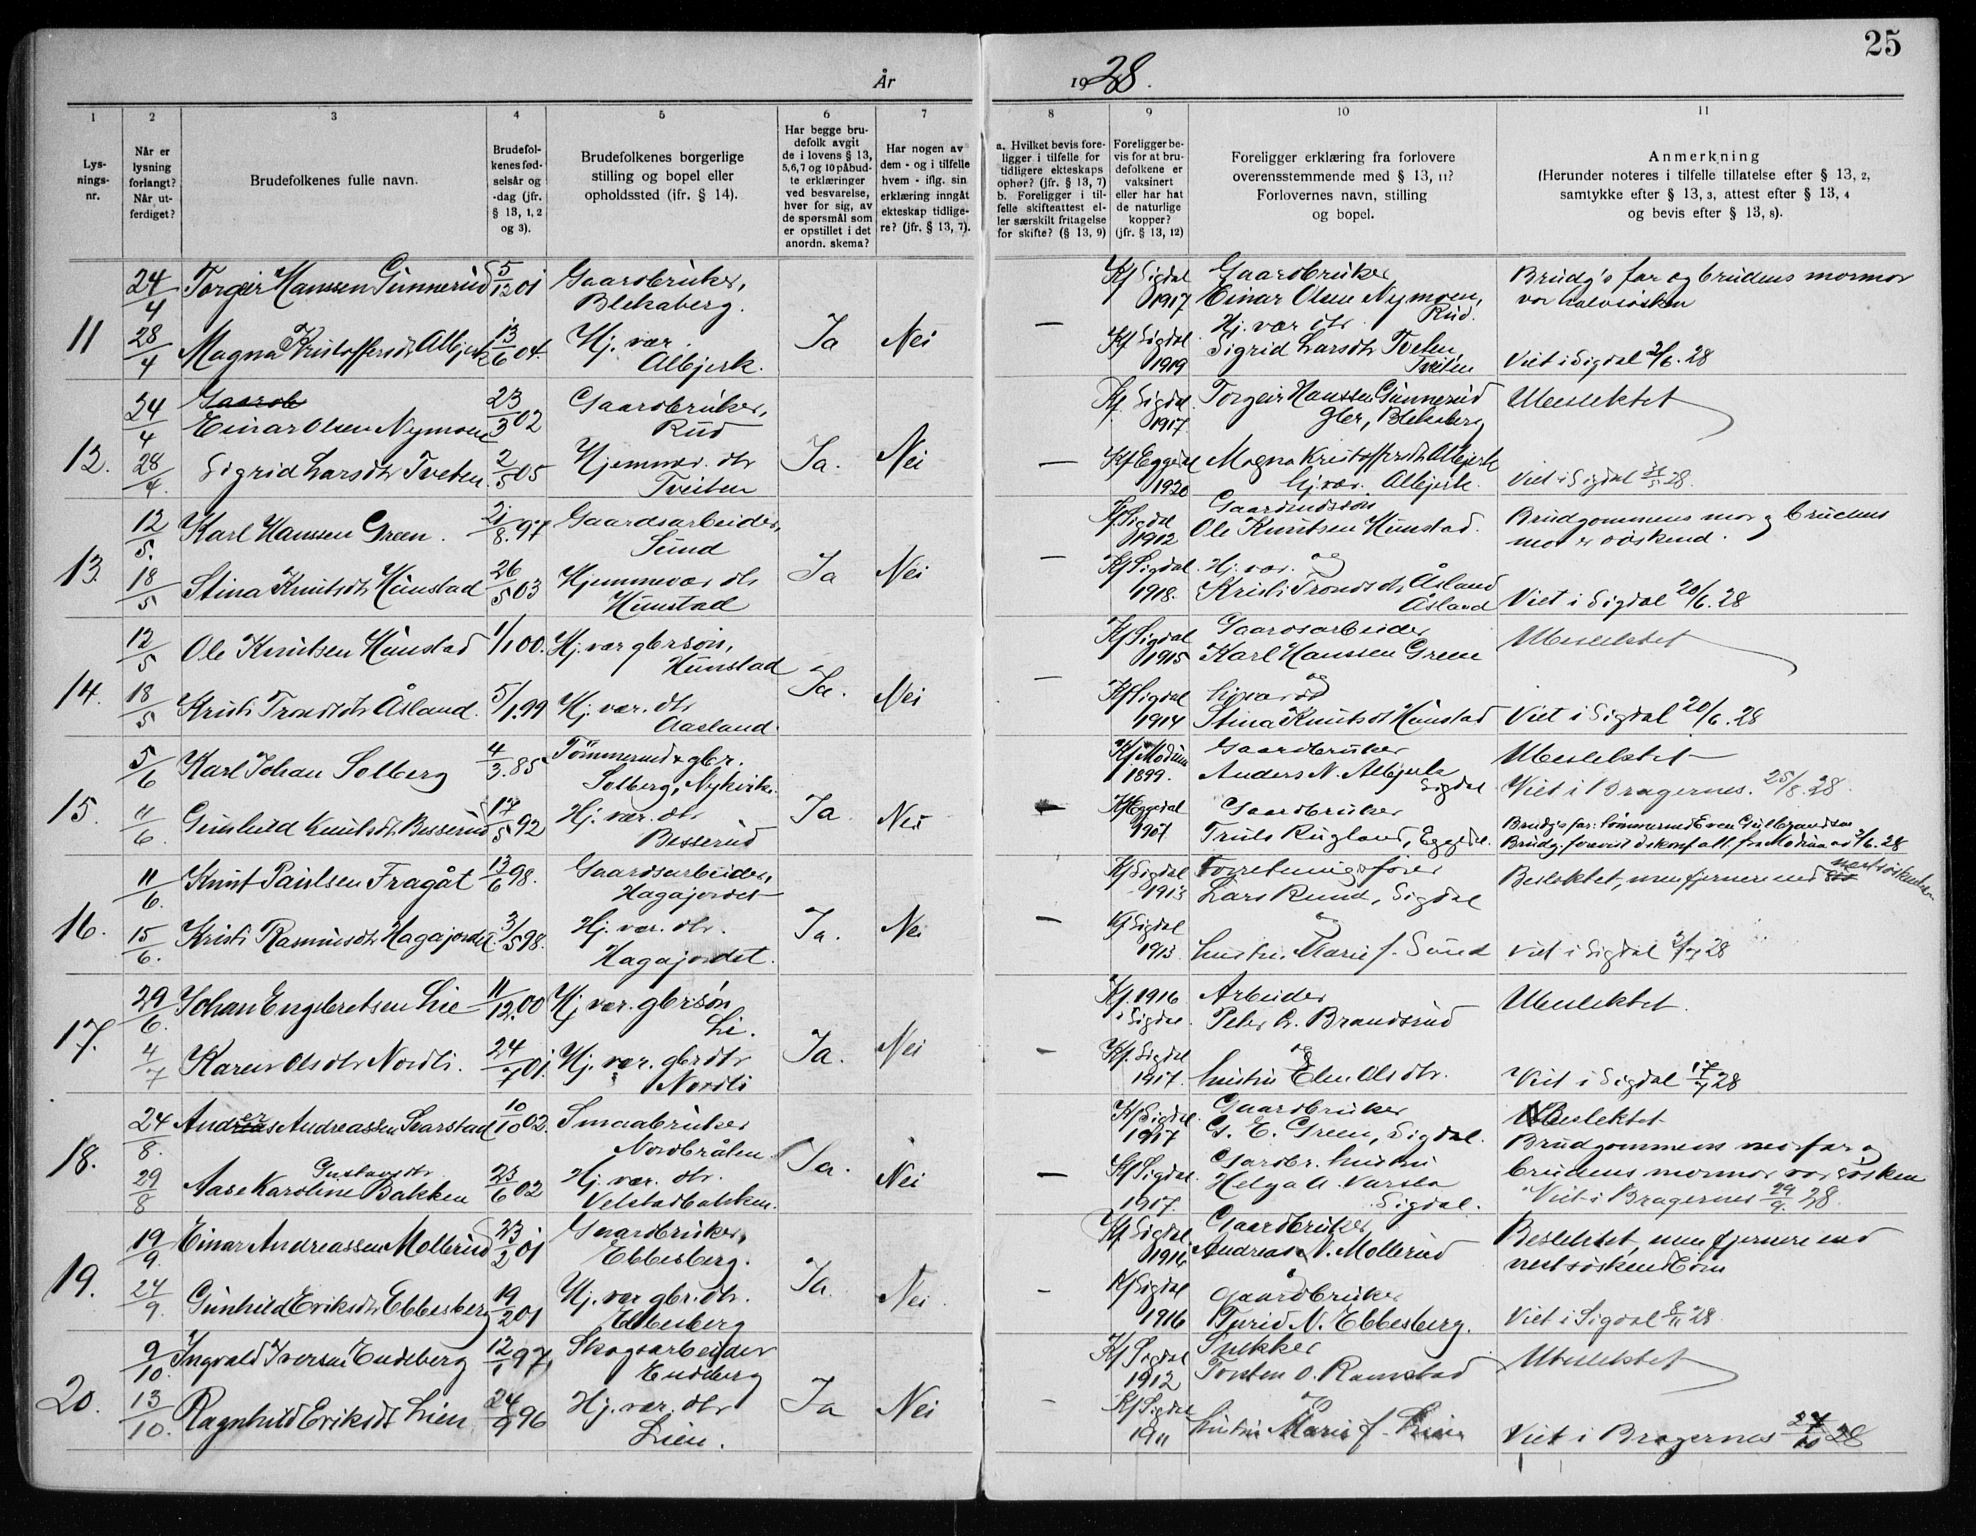 25
År 1928.
1 2 3 4 5 6 7 8 9 10 11
Lys-
nings-
nr.
Når er
lysning
forlangt?
Når ut-
ferdiget?
Brudefolkenes fulle navn.
Brudefol-
kenes fød-
selsår og
-dag (jfr.
§ 13, 1, 2
og 3).
Brudefolkenes borgerlige
stilling og bopel eller
opholdssted (ifr. § 14).
Har begge bru-
defolk avgit
de i lovens § 13,
5,6,7 og 10 påbud-
te erklæringer
ved besvarelse,
hver for sig, av
de spørsmål som
er opstillet i det
anordn. skema?
Har nogen av
dem - og i tilfelle
hvem - iflg. sin
erklæring inngått
ekteskap tidlige-
re? (jfr. § 13, 7).
a. Hvilket bevis fore-
ligger i tilfelle for
tidligere ekteskaps
ophør? (jfr. § 13, 7)
b. Foreligger i til-
felle skifteattest el-
ler særskilt fritagelse
for skifte? (§ 13, 9)
Foreligger be-
vis for at bru-
defolkene er
vaksinert
eller har hat
de naturlige
kopper?
(jfr. § 13, 12)
Foreligger erklæring fra forlovere
overensstemmende med § 13, 11?
Forlovernes navn, stilling
og bopel.
Anmerkning
(Herunder noteres i tilfelle tillatelse efter § 13, 2,
samtykke efter § 13, 3, attest efter § 13, 4
og bevis efter § 13, 8).
11
24/4 Torgeir Hanssen Gunnerud 5/12 01 Gaardbruker,
Blekaberg.
Kf Sigdal
1917
Gaardbruker
Einar Olsen Nymoen,
Rud.
Brudg's far og brudens mormor
var halvsøsken
28/4 Magna Kristoffersdtr Albjerk 13/6 04. Hj. vær.
Albjerk.
Ja Nei —
Kf Sigdal
1919
Hj. vær dtr
Sigrid Larsdtr Tveten
Tveiten
Viet i Sigdal 2/6. 28
12.
24/4 Gaardb
Einar Olsen Nymoen 23/3 02 Gaardbruker,
Rud
Kf. Sigdal
1917
Torgeir Hanssen Gunnerud
gbr, Blekaberg
Ubeslektet
28/4. Sigrid Larsdtr Tveten. 2/5 05 Hjemmev. dtr
Tveiten
Ja. Nei —
Kf Eggedal
1920
Magna Kristoffersdtr Albjerk
hj. vær. Albjerk.
Viet i Sigdal 28.
13.
12/5. Karl Hanssen Green. 21/8. 97 Gaardsarbeider,
Sund
Kf Sigdal
1912
Gaardmdssøn
Ole Knutsen Hunstad.
Brudgommens mor og brudens
mor er søskend.
18/5 Stina Knutsdtr Hunstad 26/5 03 Hjemmevær dtr
Hunstad
Ja Nei —
Kf Sigdal.
1918.
Hj. vær. og
Kristi Trondsdtr Åsland
Åsland
Viet i Sigdal 20/6. 28
14.
12/5 Ole Knutsen Hunstad 1/1 00. Hj. vær gbrsøn,
Hunstad
Kf Sigdal
1915
Gaardsarbeider
Karl Hanssen Green
Ubeslektet
18/5 Kristi Trondsdtr Åsland. 5/1. 99 Hj. vær. dtr
Aasland.
Ja. Nei —
Kf Sigdal
1914
og
Stina Knutsdtr Hunstad
Viet i Sigdal 20/6. 28
15.
5/6 Karl Johan Solberg 4/3. 85 Tømmermd & gbr.
Solberg, Nykirke.
Kf Modum
1899.
Gaardbruker
Anders N. Albjerk
Sigdal
Ubeslektet
Viet i Bragernes. 25/8. 28.
11/6. Gunhild Knutsdtr Besserud 17/5 92 Hj. vær. dtr
Besserud
Ja. Nei —
Kf Eggedal
1907
Gaardbruker
Truls Rugland, Eggedal.
Brudg's far: tømmermd Even Gulbrandsen
Brudg. forevist
16.
11/6. Knut Paulsen Fragåt 13/6 98. Gaardsarbeider,
Hagajordet
Kf Sigdal
1913
Forretningsfører
Lars Rund, Sigdal
Beslektet, men fjernere end
15/6. Kristi Rasmusdtr Hagajordet. 3/5 98. Hj. vær. dtr.
Hagajordet.
Ja. Nei —
Kf Sigdal
1913
og
hustru Marie f. Sund
Viet i Sigdal 2/7 28
17.
29/6. Johan Engebretsen Lie 11/12. 00 Hj vær. gbrsøn
Li.
Kf. 1916
i Sigdal.
Arbeider
Peter Chr. Brandsrud
Ubeslektet.
4/7 Karen Olsdtr Nordli. 24/7 01. Hj. vær. gbrdtr
Nordli
Ja. Nei —
Kf. Sigdal
1917.
og
hustru Elen Olsdtr.
Viet i Sigdal 17/7 28
18.
24/8. Anders Andreassen Skarstad 10/10 02. Smaabruker
Nordbråten.
Kf Sigdal.
1917
Gaardbruker
G. E. Green, Sigdal.
Beslektet
Brudgommens morfar og
29/8 Aase Karoline Gustavsdtr Bakken 23/6 02 Hj. vær. dtr.
Velstadbakken.
Ja. Nei —
Kf Sigdal.
1917.
Gardbr. hustru
Helga A. Varlo
Sigdal.
brudens mormor var søsken
Viet i Bragernes 29/9. 28.
19.
19/9. Einar Andreassen Mollerud 23/2 01 Gaardbruker,
Ebbesberg.
Kf Sigdal
1916
Gaardbruker
Andreas N. Mollerud
Beslektet, men fjernere end
nestsøskendbørn
24/9. Gunhild Eriksdtr Ebbesberg 19/2 01 Hj. vær gbr. dtr.
Ebbesberg
Ja. Nei. —
Kf Sigdal
1916
og
Gaardbruker
Turid N. Ebbesberg.
Viet i Sigdal 8/11 28.
20.
9/10. Ingvald Iversen Endeberg 12/1 97, Skogsarbeider
Endberg
Kf Sigdal
1912
Snekker
Torsten O. Ramstad
Ubeslektet
13/10. Ragnhild Eriksdtr Lien 24/9 96 Hj. vær. dtr
Lien.
Ja Nei —
Kf Sigdal
1911
og
hustru Marie f. Lien
Viet i Bragernes 27/10 28